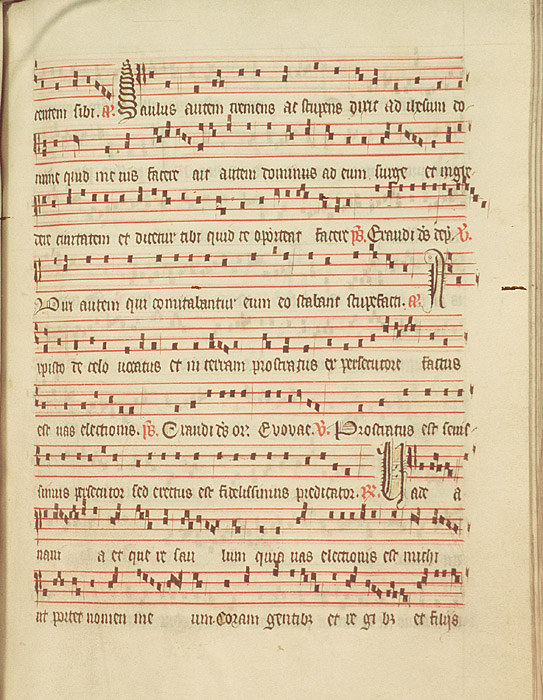 centem sibi. A. Saulus autem tremens ac stupens dixit ad ihesum do-
mine quid me vis facere ait autem dominus ad eum surge et ingre-
dere civitatem et dicetur tibi quid te oporteat facere ps. Exaudi ds dep. V.
Viri autem qui comitabantur eum eo stabant stupefacti. A. A
xpisto de celo vocatus et in terram prostratus ex persecutore factus
est vas electionis. ps. Exaudi ds or. Evovae. V. Prostratus est sevis-
simus persecutor sed erectus est fidelissimus predicator. R. Vade a
nani a et que re sau lum quia vas electionis est michi
ut portet nomen me um coram gentibz et re gi bz et filijs